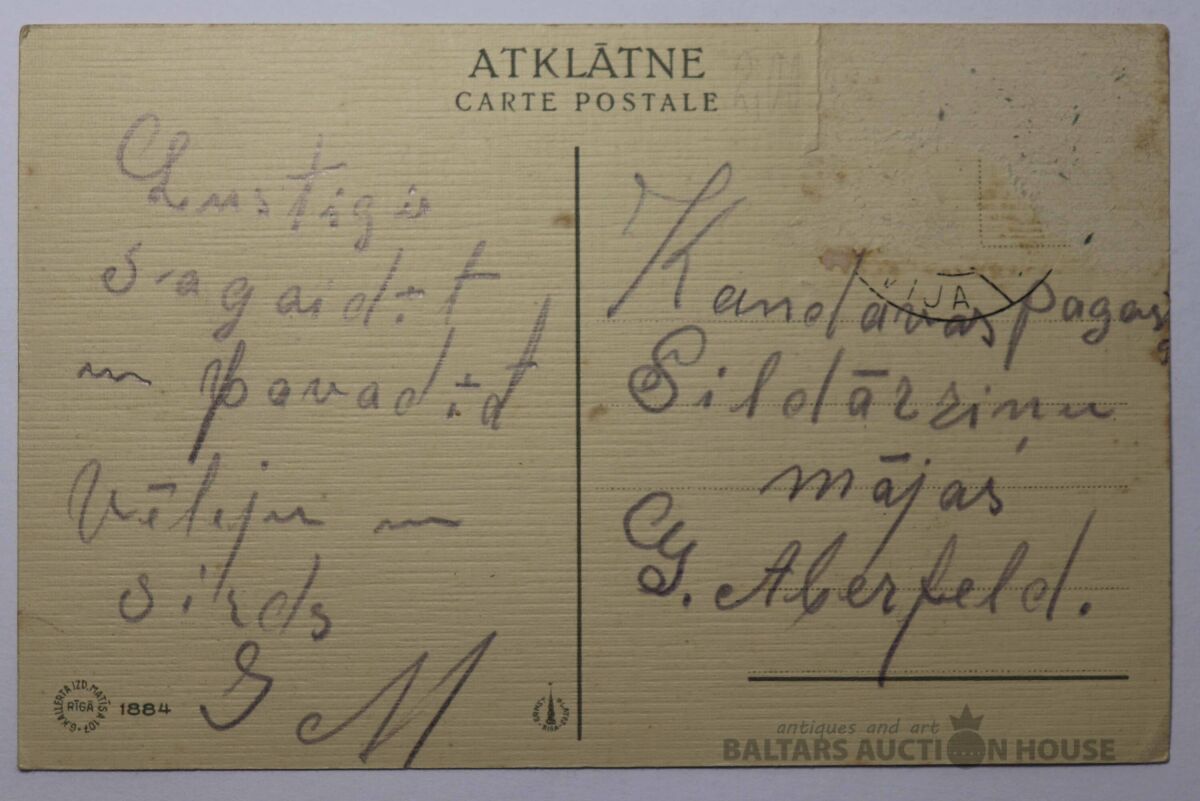 ATKLĀTNE
CARTE POSTALE
Lustigi
sagaidit
un pavadit
Vēleju un
sirds
G M
G. KALLERTA IZD. MATĪSA 107
RĪGĀ
1884
IJA
Kandavas pagas
Sildārziņu
mājas
G. Aberfeld.
antiques and art
BALTARS AUCTION HOUSE